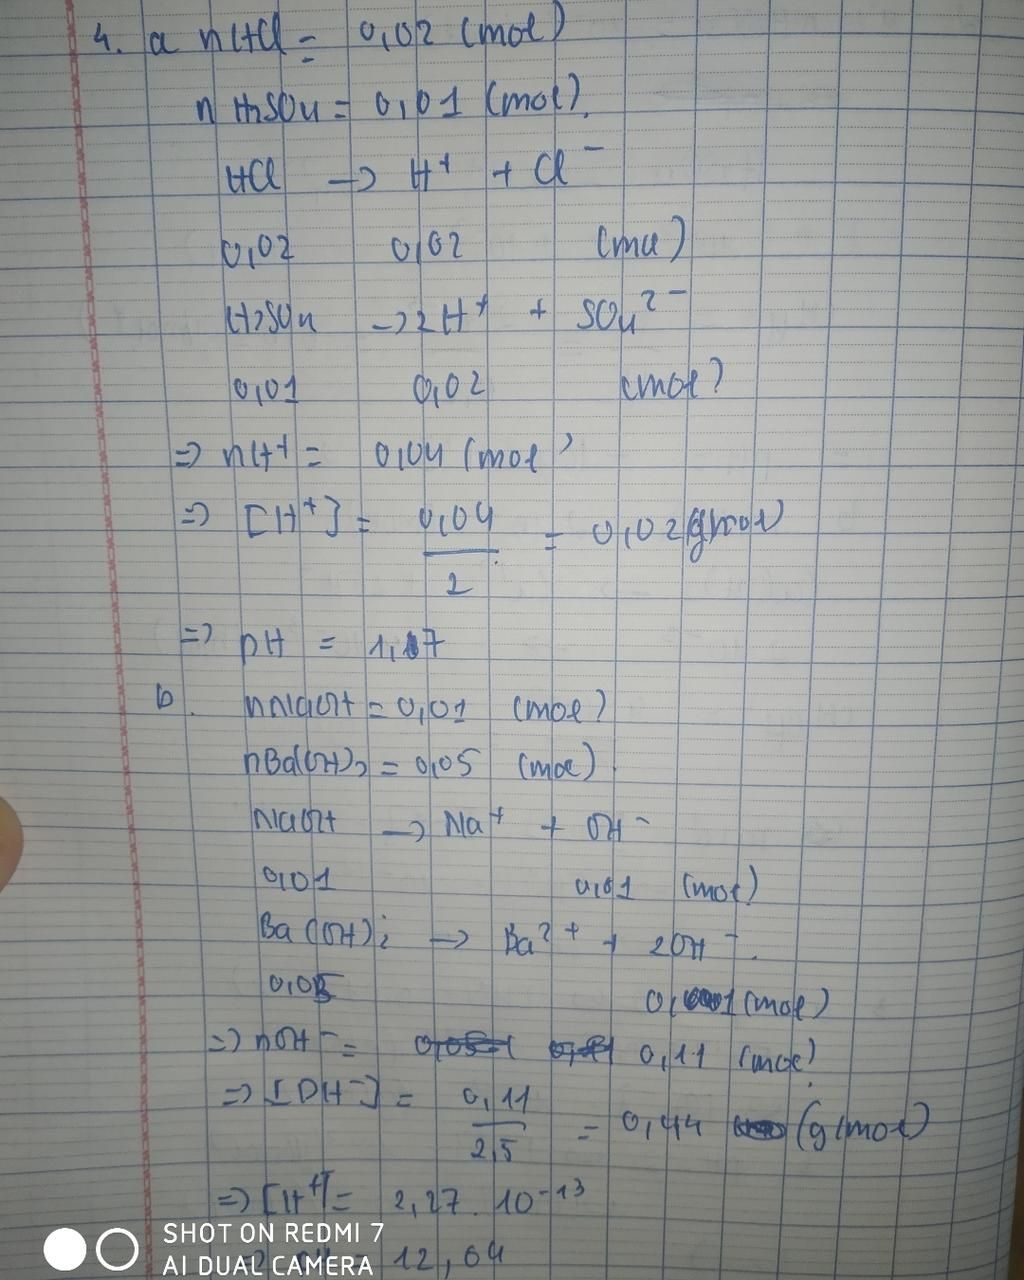 4. a nHCl = 0,02 (mol)
nH2SO4 = 0,01 (mol).
HCl -> H+ + Cl-
0,02 0,02 (mol)
H2SO4 -> 2H+ + SO4 2-
0,01 0,02 (mol)
=> nH+ = 0,04 (mol)
=> [H+] = 0,04 / 2 = 0,02 (g/mol)
=> pH = 1,17
b. nNaOH = 0,01 (mol)
nBa(OH)2 = 0,05 (mol).
NaOH -> Na+ + OH-
0,01 0,01 (mol)
Ba(OH)2 -> Ba2+ + 2OH-.
0,05 0,1 (mol)
=> nOH- = 0,11 (mol)
=> [OH-] = 0,11 / 2,5 = 0,44 (g/mol)
=> [H+] = 2,27.10-13
12,64
SHOT ON REDMI 7
AI DUAL CAMERA